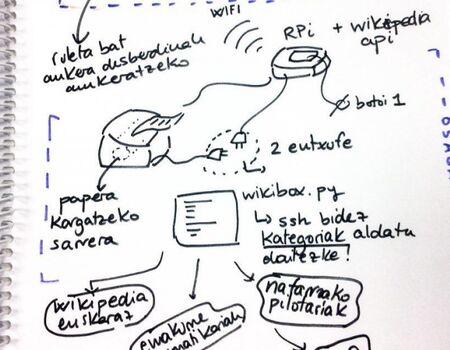 WIFI
ruleta bat
aukera desberdinak
aukeratzeko
RPi + wikipedia
api
botoi 1
2 entxufe
papera
kargatzeko
sarrera
wikibox.py
↳ ssh bidez
kategoriak aldatu
daitezke!
wikipedia
euskaraz
emakume
nafarroako
pilotariak